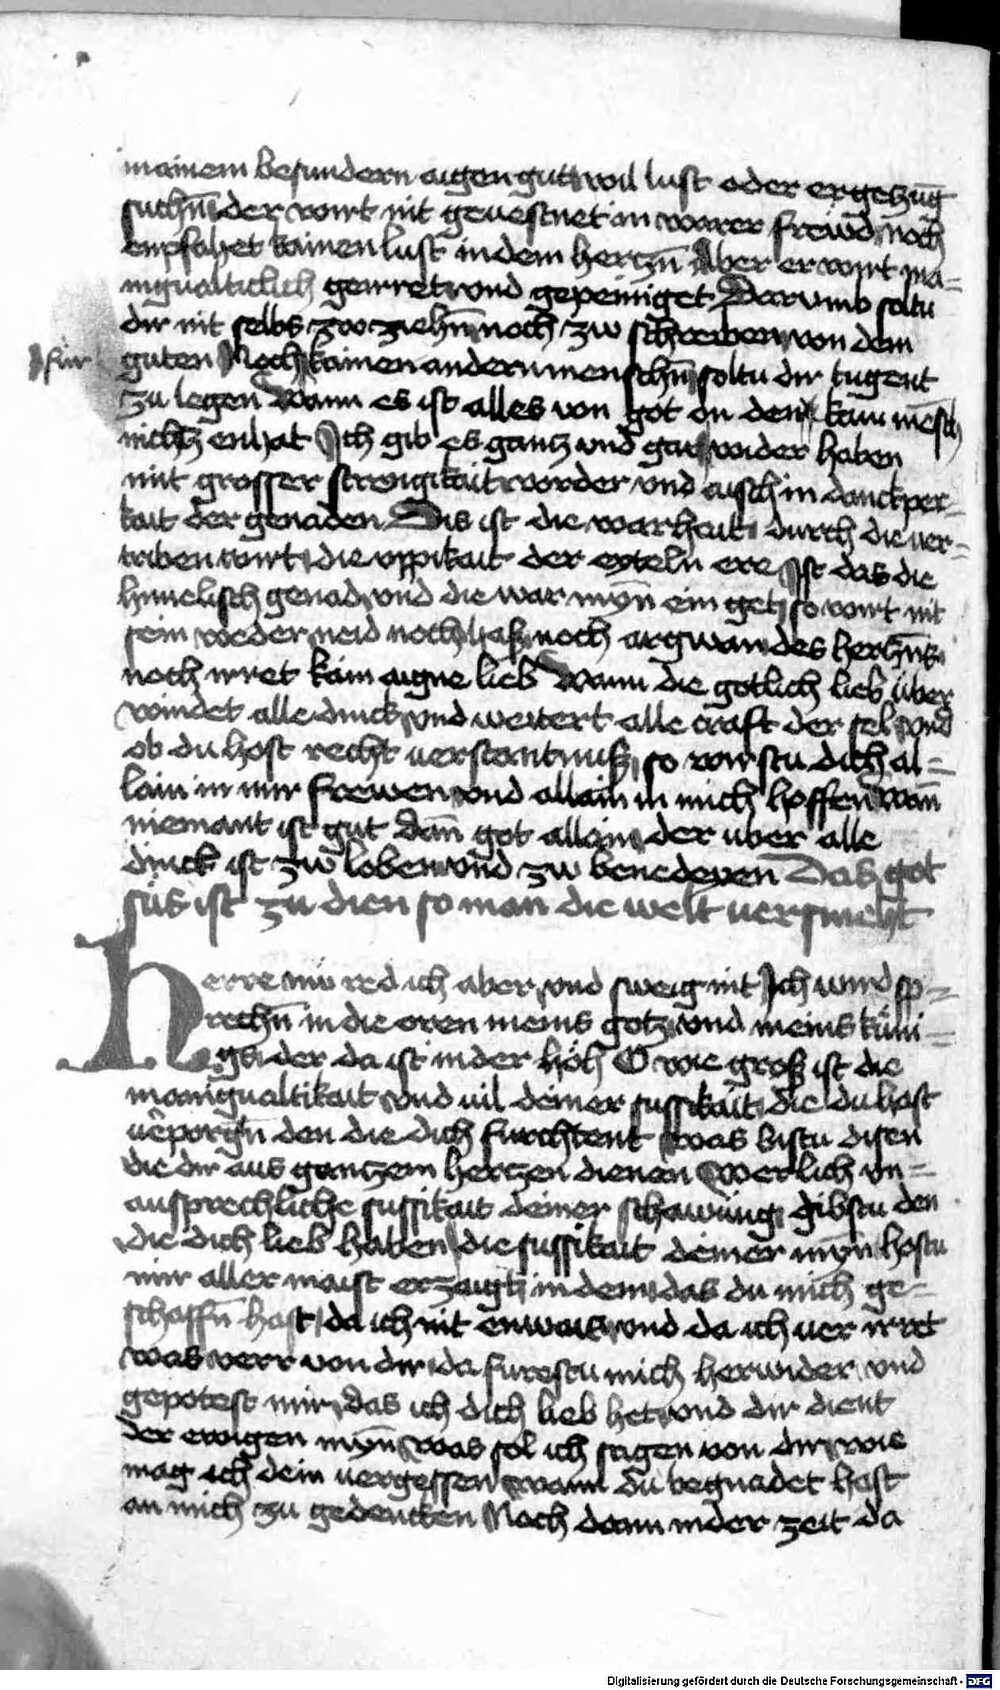 mainem besundern aigen gutt wil lust oder ergehzuḡ
suchn̄ der wirt nit geuestnet in warer frewd noch
enpfahet kainen lust in dem hertzn̄ Aber er wirt ma-
nigualticlich geirret vnd gepeiniget Darumb soltu
dir nit selbs zw ziehn̄ noch zw schreiben von dem
für guten Noch kainen andern menschn̄ soltu dir tugent
zu legen Wann es ist alles von got on den kain mēsch
nichtz enhat Ich gib es gantz vnd gar wider haben
mit grosser strengikait vorder vnd aisch in danckper-
kait der genaden Dis ist die warheit durch die uer-
triben wirt die vppikait der eyteln ere Ist das die
himelisch genad vnd die war myn̄ ein get so wirt nit
sein weder neid noch has noch argwan des hertzns
noch irret kain aigne lieb Wann die gotlich lieb über
windet alle dinck vnd weitert alle craft der sel vnd
ob du host recht uerstantnuß so wirstu dich al-
lain in mir frewen vnd allain in mich hoffen wan̄
niemant ist gut dan̄ got allein der uber alle
dinck ist zw loben vnd zw benedeyen Das got
süs ist zu dien so man die welt uersmeht
Herre nu red ich aber vnd sweig nit Ich wird sp-
rechn̄ in die oren meins gotz vnd meins küni-
gs der da ist in der höh O wie groß ist die
manigualtikait vnd uil deiner sussikait die du hast
uerporgn̄ den die dich furchtent was bistu disen
die dir aus gantzem hertzen dienen werlich vn-
aussprechliche sussikait deiner schawung gibstu den
die dich lieb haben die sussikait deiner myn̄ hostu
mir aller maist erzaigt in dem das du mich ge-
schaffn̄ hast da ich nit enwas vnd da ich uer irret
was verr von dir da furestu mich herwider vnd
gepotest mir das ich dich lieb het vnd dir dient
der ewigen myn̄ was sol ich sagen von dir wie
mag ich dein uergessen wann du begnadet hast
an mich zu gedencken Noch dann in der zeit da
Digitalisierung gefördert durch die Deutsche Forschungsgemeinschaft - DFG